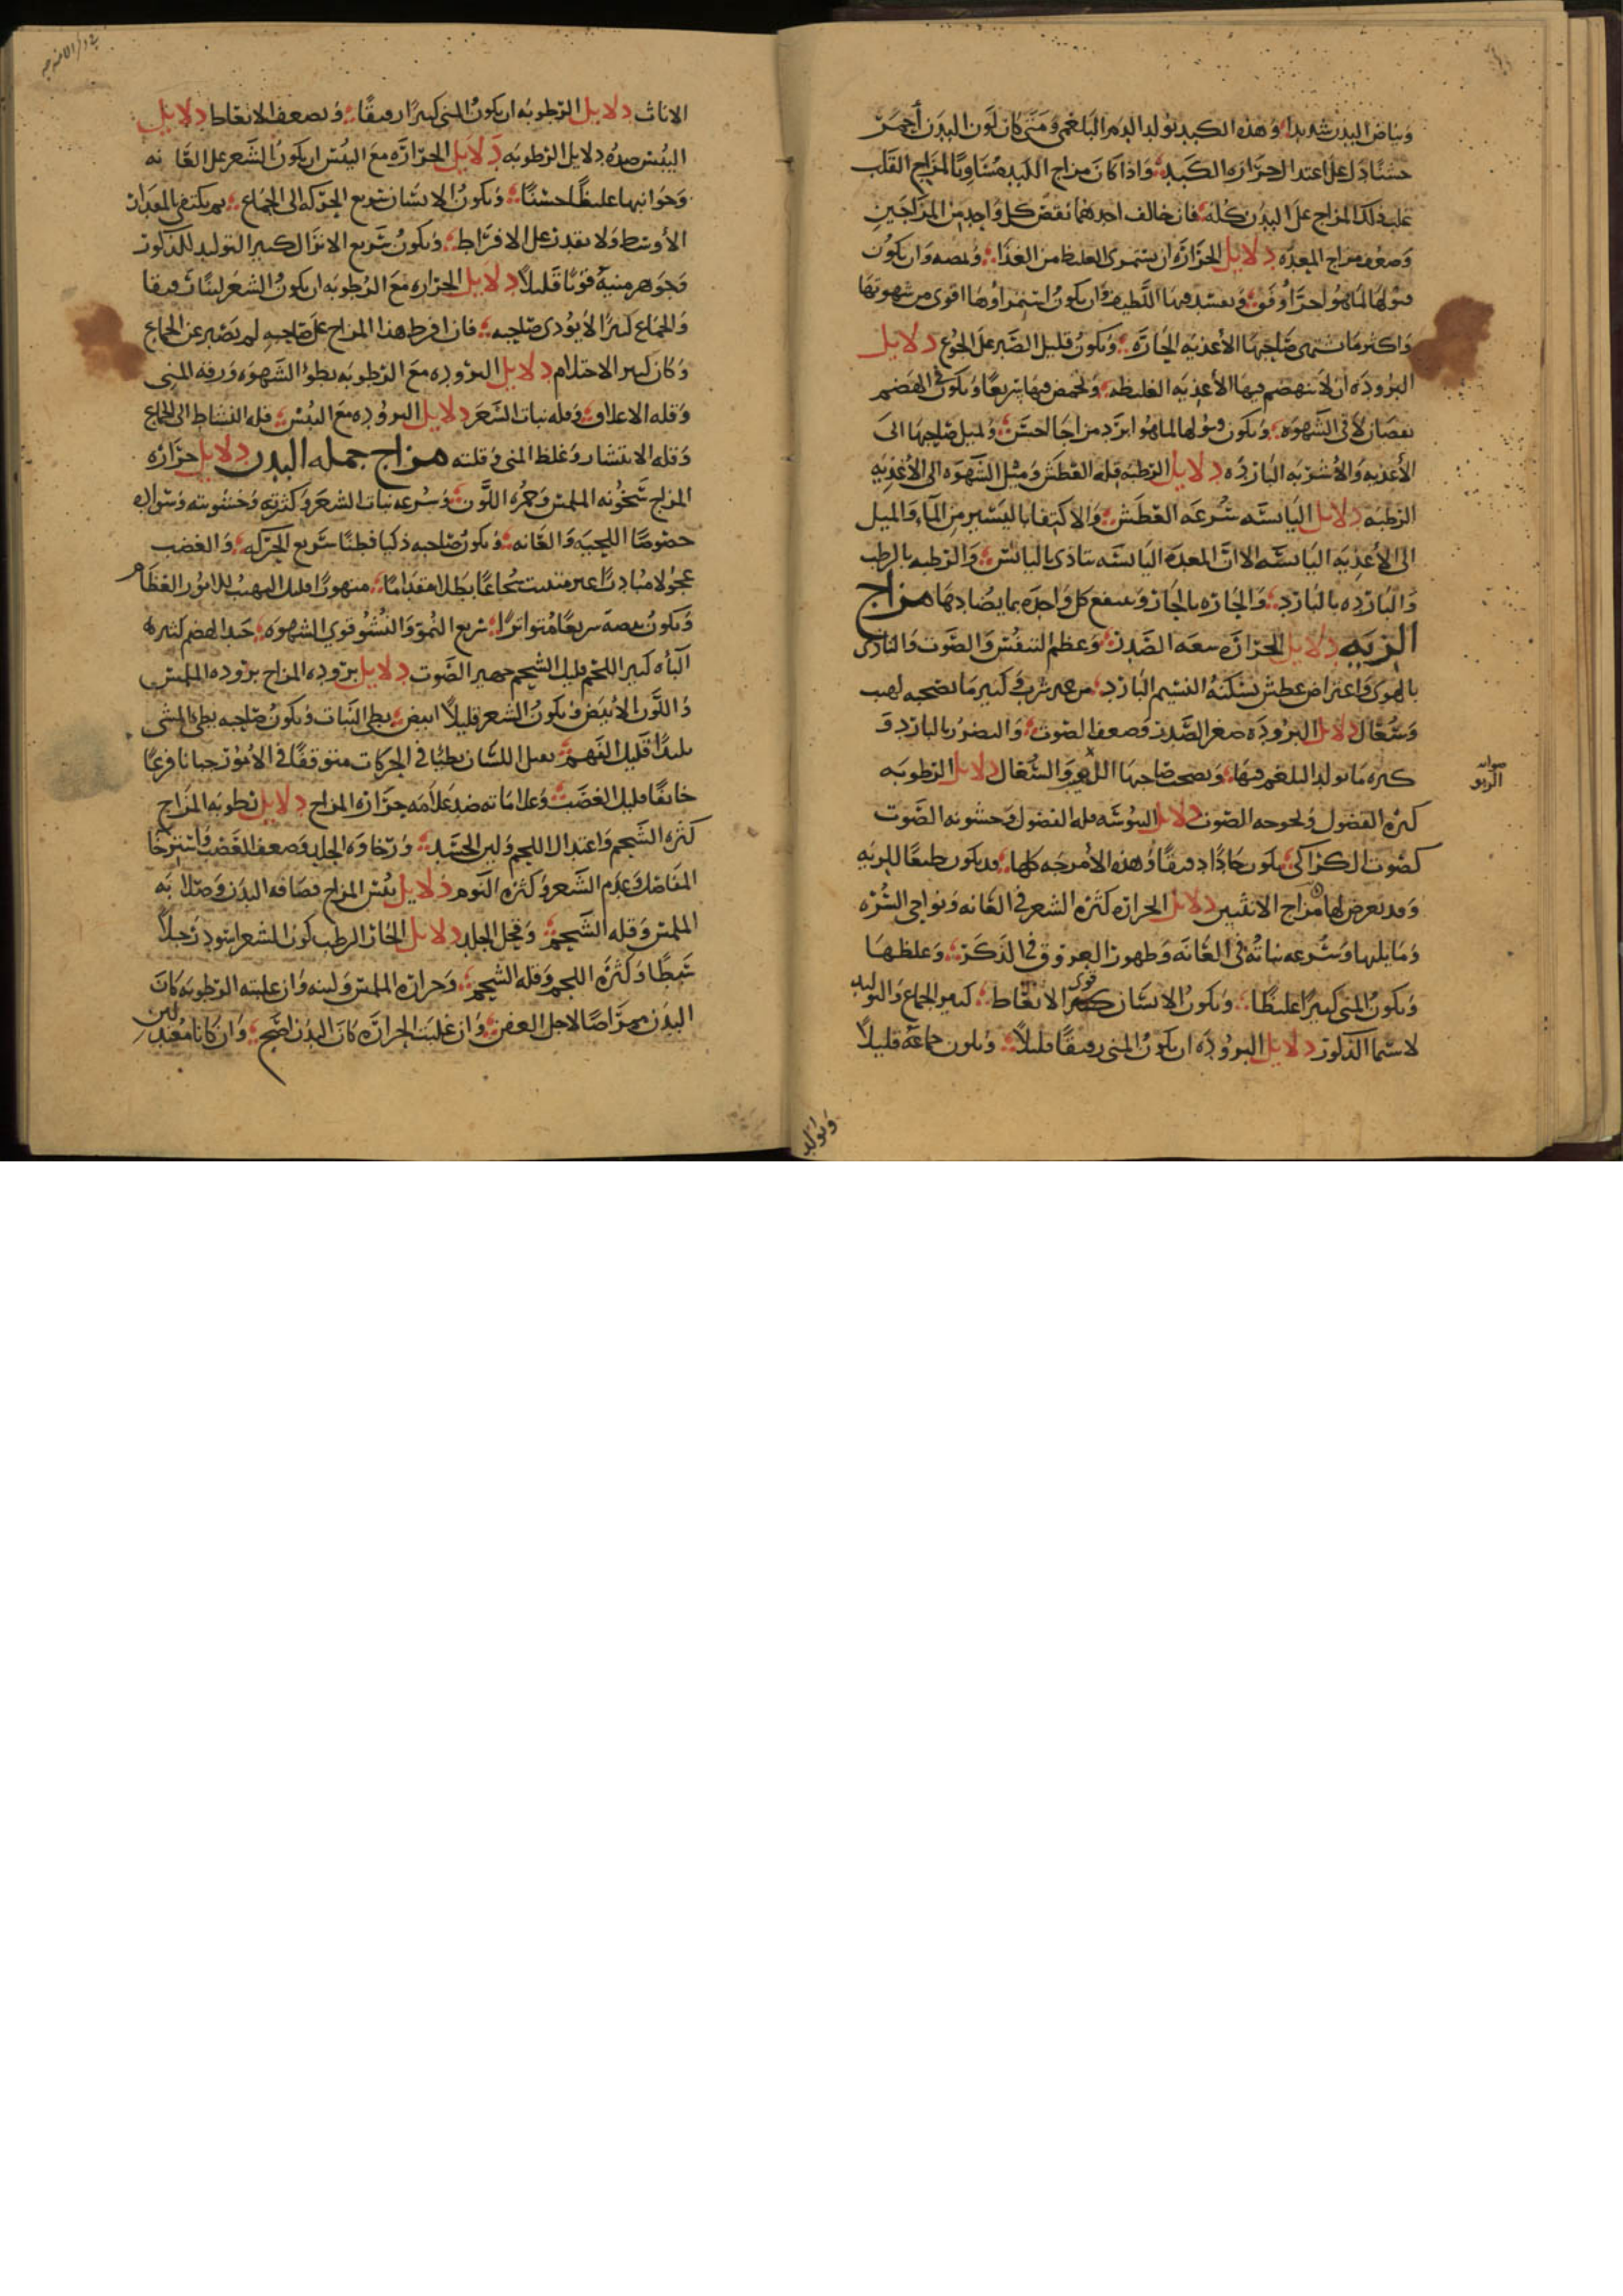 وبياض البدن شديدا وهذه الكبد تولد الدم البلغمي ومتى كان لون البدن أحمر
حسنا دل على اعتدال حرارة الكبد واذا كان مزاج الكبد مساويا لمزاج القلب
غلب ذلك المزاج على البدن كله فان خالف احدهما نقص كل واحد من المزاجين
مزاج المعدة دلايل الحرارة ان تستمري الغليظ من الغذا وان يكون
لما هو احر أوفق ويفسد فيها اللطيف وان يكون استمراوها اقوى من شهوتها
واكثر ما يشتهي صاحبها الأغذيه الحارة ويكون قليل الصبر على الجوع دلايل
البرودة ان لا ينهضم فيها الأغذيه الغليظه ويحمض فيها سريعا ويكون في الهضم
نقصان لا في الشهوة ويكون لما هو ابرد مزاجا احسن ويميل صاحبها الى
الأغذيه والأشربه البارده دلايل الرطبه قله العطش وميل الشهوه الى الأغذيه
الرطبه دلايل اليابسه سرعه العطش والاكتفا باليسير من الماء والميل
الى الأغذيه اليابسه الا ان المعدة اليابسه تتاذى باليابس والرطبه بالرطب
والبارده بالبارد والحاره بالحار وينتفع كل واحدة بما يضادها مزاج
الريه دلايل الحرارة سعه الصدر وعظم التنفس والصوت والتاذى
بالهوى واعتراض عطش يسكنه النسيم البارد من غير شرب وكثير ما يصحبه لهيب
وسعال دلايل البرودة صغر الصدر وضعف الصوت والتضرر بالبارد و
كثرة ما يتولد البلغم فيها ويصحب صاحبها والسعال دلايل الرطوبه
صوابه
الربو
كثرة الفضول وبحوحه الصوت دلايل اليبوسه قله الفضول وخشونه الصوت
كصوت الكراكي يكون حادا دقيقا وهذه الأمزجه كلها قد يكون طبعا للريه
وقد يعرض لها مزاج الانثيين دلايل الحرارة كثره الشعر في العانه ونواحي السره
وما يليها وسرعه نباته في العانه وظهور العروق في الذكر وغلظها
ويكون المني كثيرا غليظا ويكون الانسان قوي الانعاظ كثير الجماع والتوليد
لا سيما الذكور دلايل البرودة ان يكون المني رقيقا قليلا ويكون جماعه قليلا
وتوليد
الاناث دلايل الرطوبه ان يكون المني كثيرا رقيقا ويضعف الانعاظ دلايل
اليبس ضد دلايل الرطوبه دلايل الحرارة مع اليبس ان يكون الشعر على العانه
وجوانبها غليظا خشنا ويكون الانسان سريع الحركه الى الجماع ثم يكتفي بالمعدار
الأوسط ولا يقدر على الافراط ويكون سريع الانزال كثير التوليد للذكور
وجوهر منيه قويا قليلا دلايل الحراره مع الرطوبه ان يكون الشعر لينا رقيقا
والجماع كثيرا لا يؤذي صاحبه فان افرط هذا المزاج على صاحبه لم يصبر عن الجماع
وكان كثير الاحتلام دلايل البروده مع الرطوبه بطؤ الشهوه ورقه المني
وقله الاعلاق وقله نبات الشعر دلايل البروده مع اليبس قله النشاط الى الجماع
وقله الانتشار وغلظ المني وقلته مزاج جمله البدن دلايل حراره
المزاج سخونه الملمس وحمره اللون وسرعه نبات الشعر وكثرته وخشونته وسواده
خصوصا اللحيه والعانه ويكون صاحبه ذكيا فطنا سريع الحركه والغضب
عجولا مبادرا غير متثبت شجاعا بطلا مقداما متهورا قليل التهيب للامور العظام
ويكون نبضه سريعا متواترا سريع النمو والنشو قوي الشهوه جيد الهضم كثير
الباه كثير اللحم قليل الشحم جهير الصوت دلايل بروده المزاج بروده الملمس
واللون الأبيض ويكون الشعر قليلا ابيض بطي النبات ويكون صاحبه بطي المشي
بليدا قليل الفهم ثقيل اللسان بطيا في الحركات متوقفا في الامور جبانا فزعا
خائفا قليل الغضب وعلاماته ضد علامه حرارة المزاج دلايل رطوبه المزاج
كثره الشحم واعتدال اللحم ولين الجسد ورخاوة الجلد وضعف الغضب واسترخا
المفاصل وعدم الشعر وكثره النوم دلايل يبس المزاج قضافه البدن وصلابه
الملمس وقله الشحم وقحل الجلد دلايل الحار الرطب كون الشعر اسود رجلا
سبطا وكثره اللحم وقله الشحم وحراره الملمس ولينه وان غلبته الرطوبه كان
البدن ممراضا لاجل العفن وان غلبت الحرارة كان البدن اصح وان كانا معتدلين